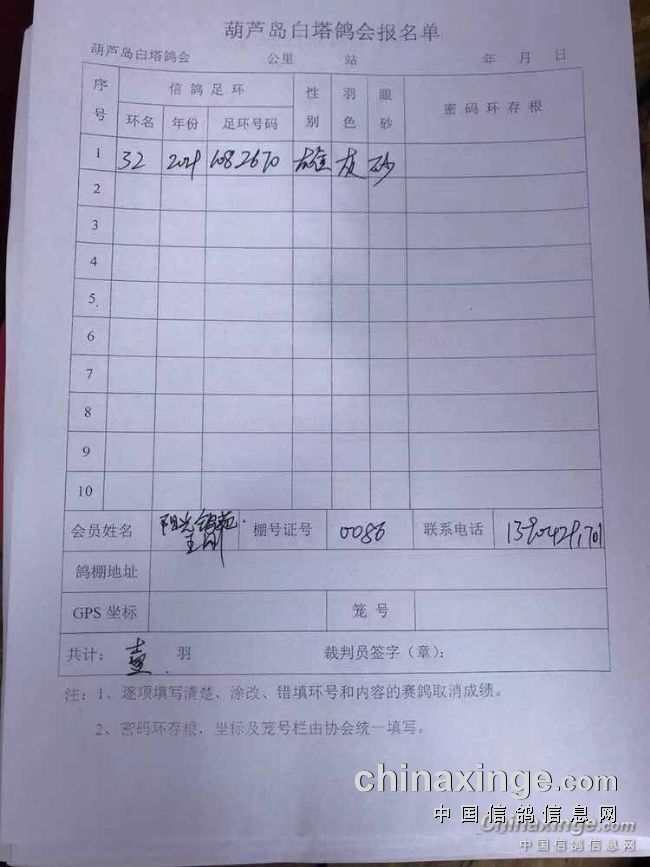 葫芦岛白塔鸽会报名单
葫芦岛白塔鸽会 公里 站 年 月 日
序号 信鸽足环 性别 羽色 眼砂 密码环存根
环名 年份 足环号码
1 32 2021 1082670 雄 灰 砂
2
3
4
5
6
7
8
9
10
会员姓名 阳光鸽苑 王刚 棚号证号 0086 联系电话
鸽棚地址
GPS 坐标 笼号
共计: 壹 羽 裁判员签字(章):
注:1、逐项填写清楚,涂改、错填环号和内容的赛鸽取消成绩。
2、密码环存根,坐标及笼号栏由协会统一填写。
chinaxinge.com
中国信鸽信息网
Chinaxinge.com
中国信鸽信息网